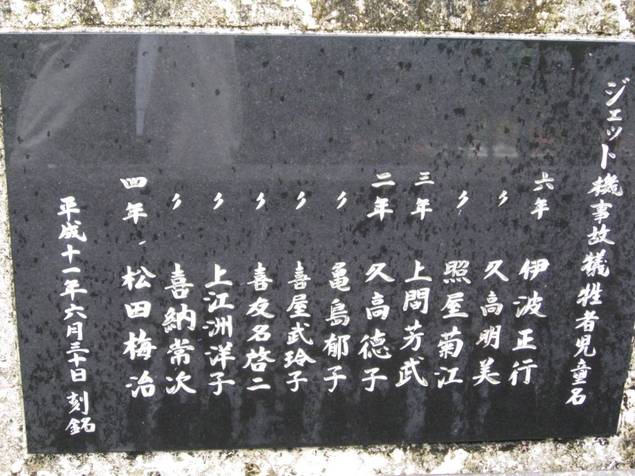 ジェット機事故犠牲者児童名
六年 伊波正行
〃 久高明美
〃 照屋菊江
三年 上間芳武
二年 久高徳子
〃 亀島郁子
〃 喜屋武玲子
〃 喜友名啓二
〃 上江洲洋子
〃 喜納常次
四年 松田梅治
平成十一年六月三十日 刻銘